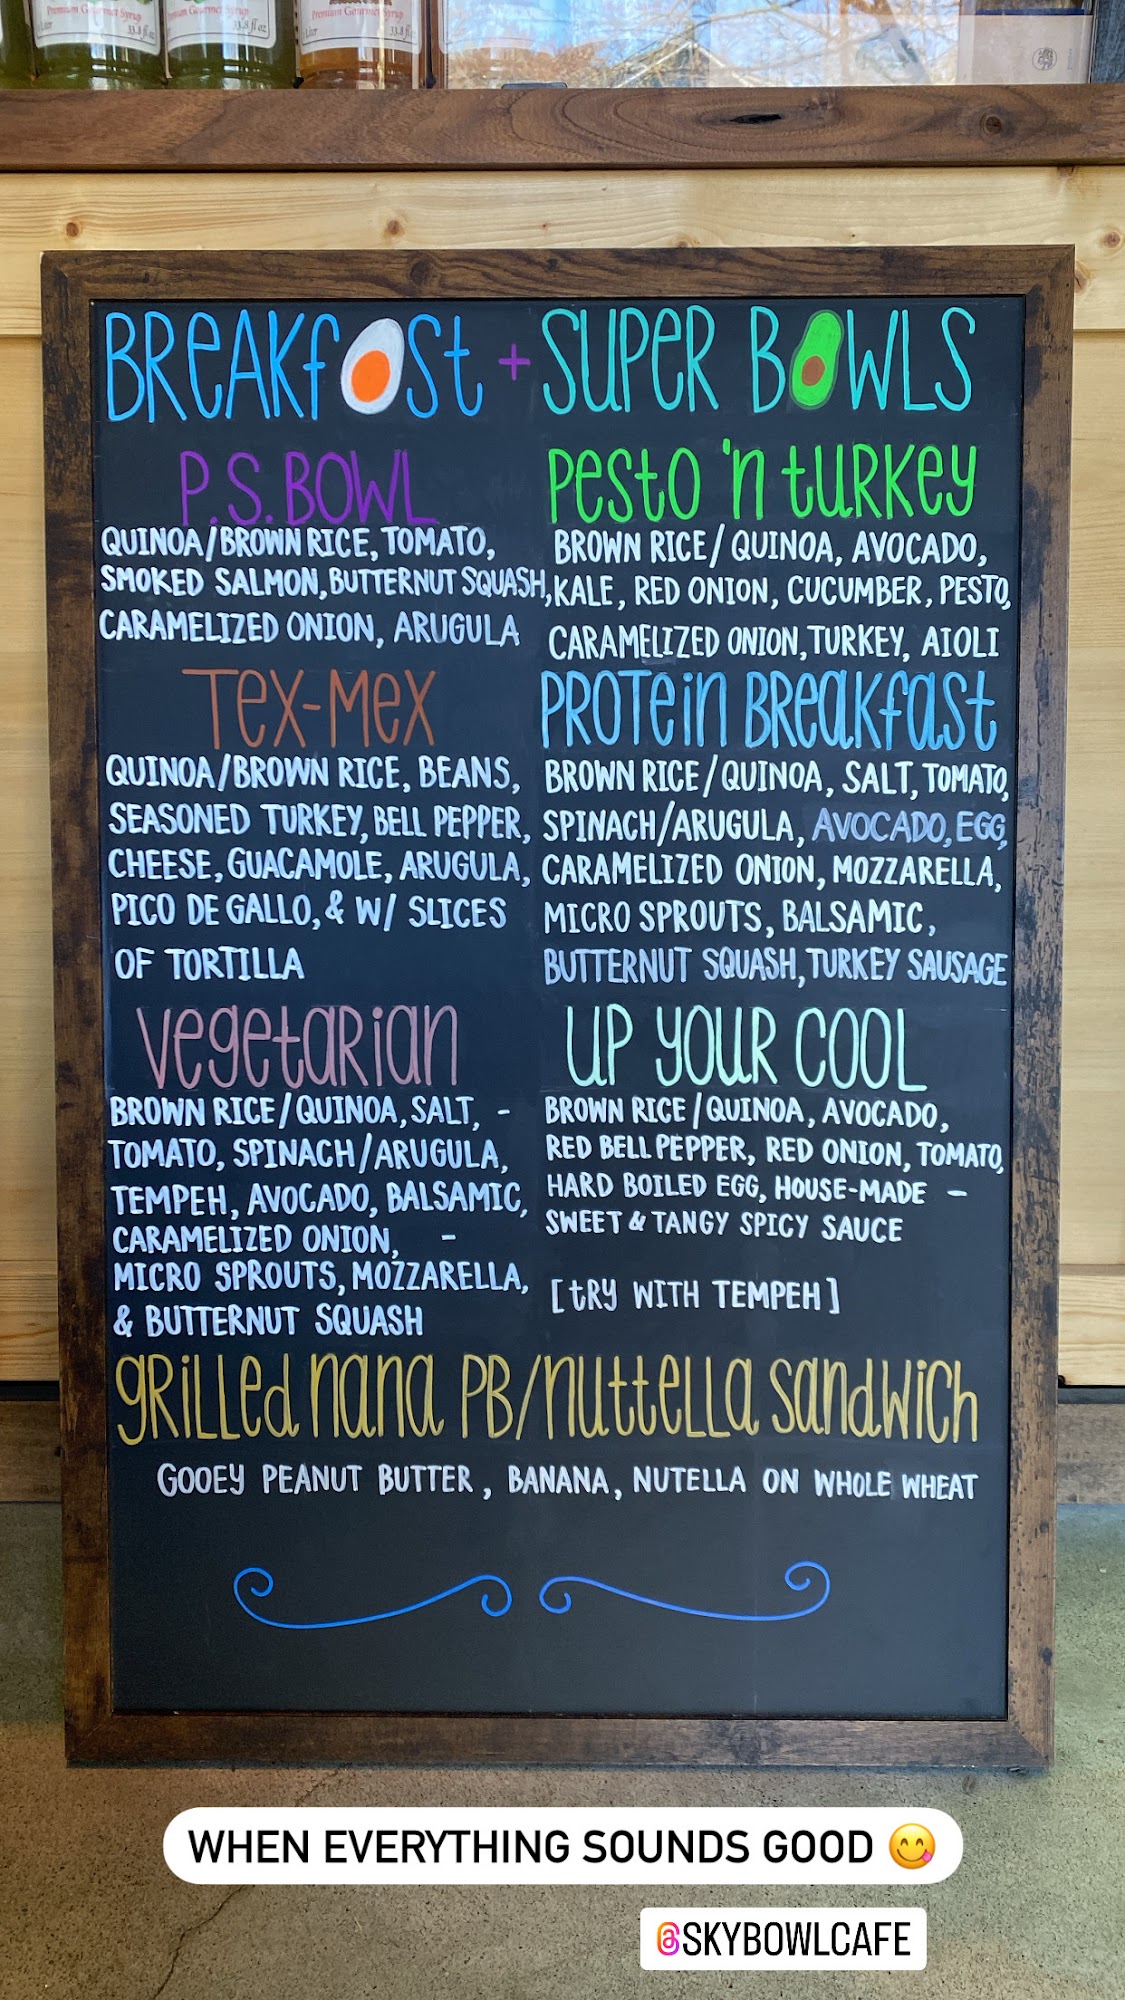 Premium Gourmet Syrup
33.8 fl oz
Premium Gourmet Syrup
33.8 fl oz
Premium Gourmet Syrup
33.8 fl oz
BREAKFAST + SUPER BOWLS
P.S. BOWL
QUINOA/BROWN RICE, TOMATO,
SMOKED SALMON, BUTTERNUT SQUASH,
CARAMELIZED ONION, ARUGULA
TEX-MEX
QUINOA/BROWN RICE, BEANS,
SEASONED TURKEY, BELL PEPPER,
CHEESE, GUACAMOLE, ARUGULA,
PICO DE GALLO, & W/ SLICES
OF TORTILLA
VEGETARIAN
BROWN RICE/QUINOA, SALT, -
TOMATO, SPINACH/ARUGULA,
TEMPEH, AVOCADO, BALSAMIC,
CARAMELIZED ONION, -
MICRO SPROUTS, MOZZARELLA,
& BUTTERNUT SQUASH
PESTO 'N TURKEY
BROWN RICE/QUINOA, AVOCADO,
KALE, RED ONION, CUCUMBER, PESTO,
CARAMELIZED ONION, TURKEY, AIOLI
PROTEIN BREAKFAST
BROWN RICE/QUINOA, SALT, TOMATO,
SPINACH/ARUGULA, AVOCADO, EGG,
CARAMELIZED ONION, MOZZARELLA,
MICRO SPROUTS, BALSAMIC,
BUTTERNUT SQUASH, TURKEY SAUSAGE
UP YOUR COOL
BROWN RICE/QUINOA, AVOCADO,
RED BELL PEPPER, RED ONION, TOMATO,
HARD BOILED EGG, HOUSE-MADE -
SWEET & TANGY SPICY SAUCE
[TRY WITH TEMPEH]
GRILLED NANA PB/NUTTELLA SANDWICH
GOOEY PEANUT BUTTER, BANANA, NUTELLA ON WHOLE WHEAT
WHEN EVERYTHING SOUNDS GOOD 😋
@SKYBOWLCAFE